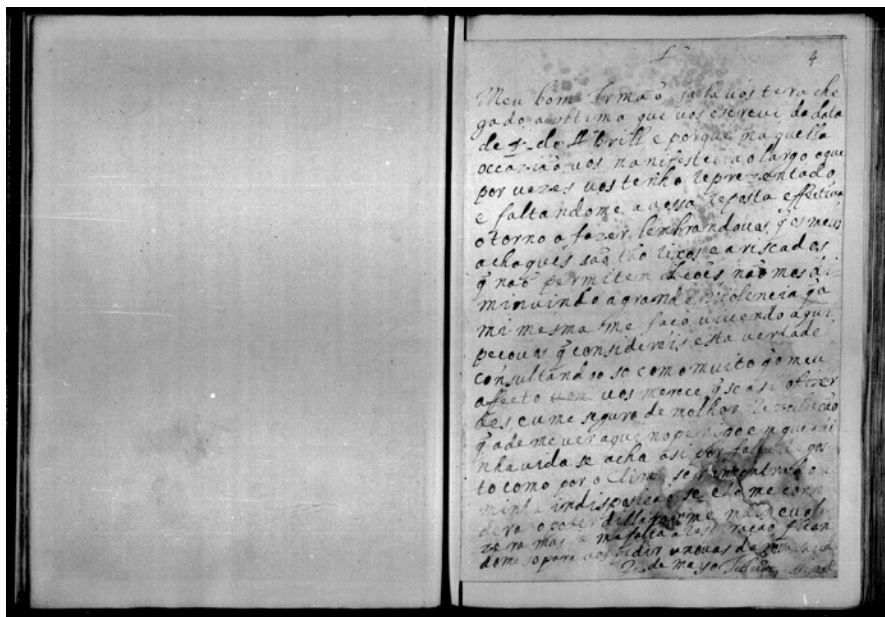 4
Meu bom Irmaõ ja la vos tera che
gado a ultima que vos escrevi da data
de de Abrill e porque naquella
occaziaõ vos manifestei ao largo o que
por vezes vos tenho reprezentado
e faltandome a vossa reposta effectiva
o torno a fazer lembrandovas, q̃ os meus
achaques saõ taõ e ariscados
q̃ naõ permitem naõ mos di
minuindo a grande violencia q̃ a
mi mesma me faço vivendo aqui
peçovos q̃ considereis esta verdade
consultandoso so como muito q̃ o meu
affecto vos merece q̃ se asi o fizer
des, eu me siguro de melhor rezulução
q̃ a de me ver aqui no em que mi
nha vida se acha asi por falta de gos
to como por o Clima ser contrario a
minha indisposiçaõ se eu me
dera o poder me
mas a me falta a
dome so para vos pedir novas de
de mayo